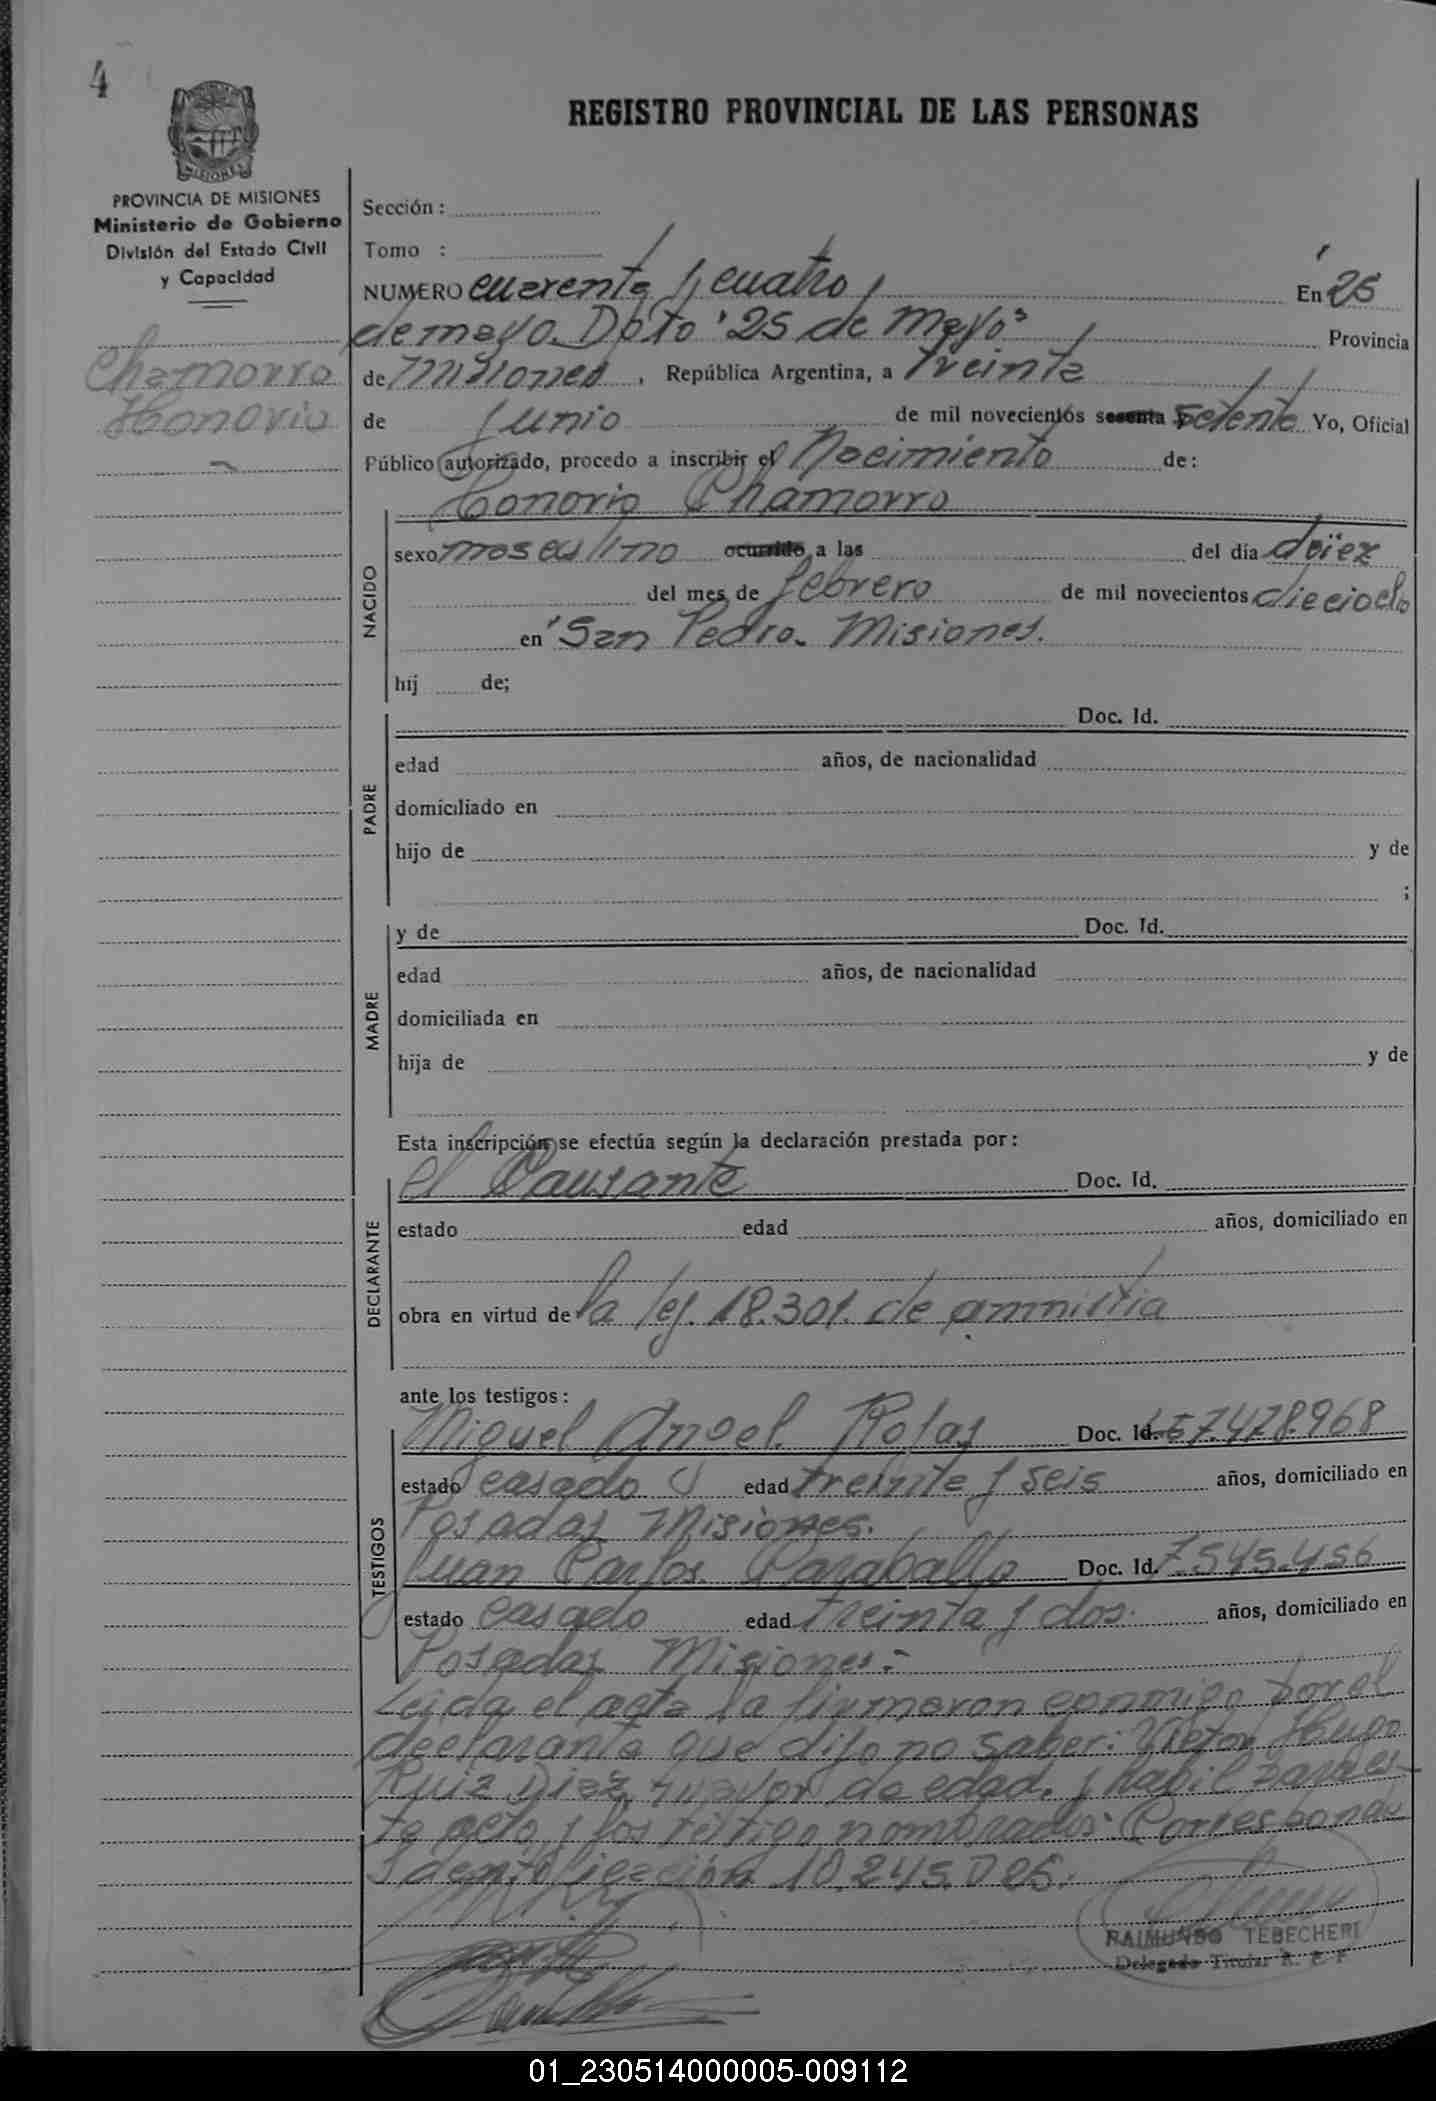 4
REGISTRO PROVINCIAL DE LAS PERSONAS
MISIONES
PROVINCIA DE MISIONES
Ministerio de Gobierno
División del Estado Civil
y Capacidad
Chamorro
Honorio
Sección :
Tomo :
NUMERO cuarenta y cuatro En 25
de mayo. Dpto "25 de Mayo" Provincia
de Misiones , República Argentina, a treinta
de Junio de mil novecientos sesenta setenta Yo, Oficial
Público autorizado, procedo a inscribir el Nacimiento de:
Honorio Chamorro
NACIDO
sexo masculino ocurrido a las del día dïez
del mes de febrero de mil novecientos dieciocho
en San Pedro. Misiones.
hij de;
PADRE
Doc. Id.
edad años, de nacionalidad
domiciliado en
hijo de y de
;
MADRE
y de Doc. Id.
edad años, de nacionalidad
domiciliada en
hija de y de
Esta inscripción se efectúa según la declaración prestada por:
DECLARANTE
el Causante Doc. Id.
estado edad años, domiciliado en
obra en virtud de la ley. 18.301. de amnistia
ante los testigos:
TESTIGOS
Miguel Angel Rojas Doc. Id. 7.478.968
estado casado edad treinta y seis años, domiciliado en
Posadas Misiones.
Juan Carlos Caraballo Doc. Id. 7.545.456
estado casado edad treinta y dos. años, domiciliado en
Posadas Misiones.-
Leida el acta la firmaron conmigo por el
declarante que dijo no saber: Victor Hugo
Ruiz Diaz, mayor de edad, y habil para es-
te acto y los testigo nombrados. Corresponde
Identificación 10.245.085.
RAIMUNDO TEBECHERI
Delegado Titular R. P. P
01_230514000005-009112